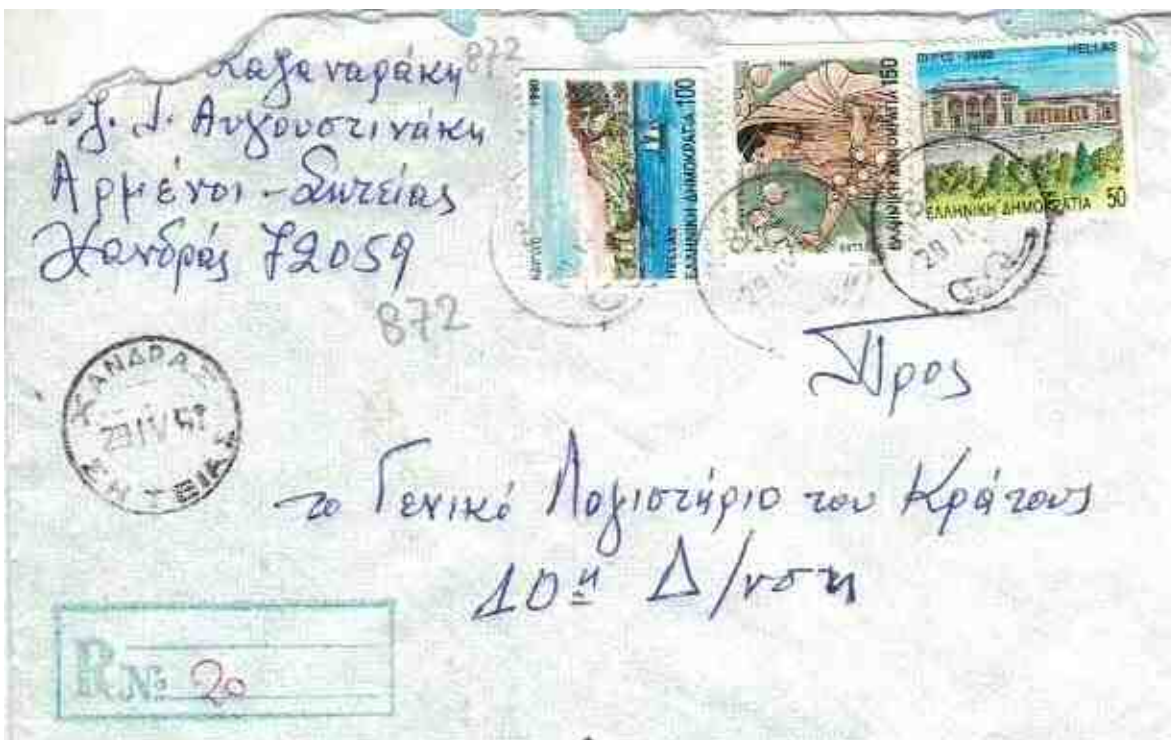 872
Αυγουστινάκη
Αρμένοι - Σητείας
Χανδράς 72059
872
1990
ΕΛΛΗΝΙΚΗ ΔΗΜΟΚΡΑΤΙΑ 100
HELLAS
ΕΛΛΗΝΙΚΗ ΔΗΜΟΚΡΑΤΙΑ 150
HELLAS
ΕΛΛΗΝΙΚΗ ΔΗΜΟΚΡΑΤΙΑ 50
Προς
ΧΑΝΔΡΑΣ
ΣΗΤΕΙΑΣ
το Γενικό Λογιστήριο του Κράτους
10η Δ/νση
R No 20